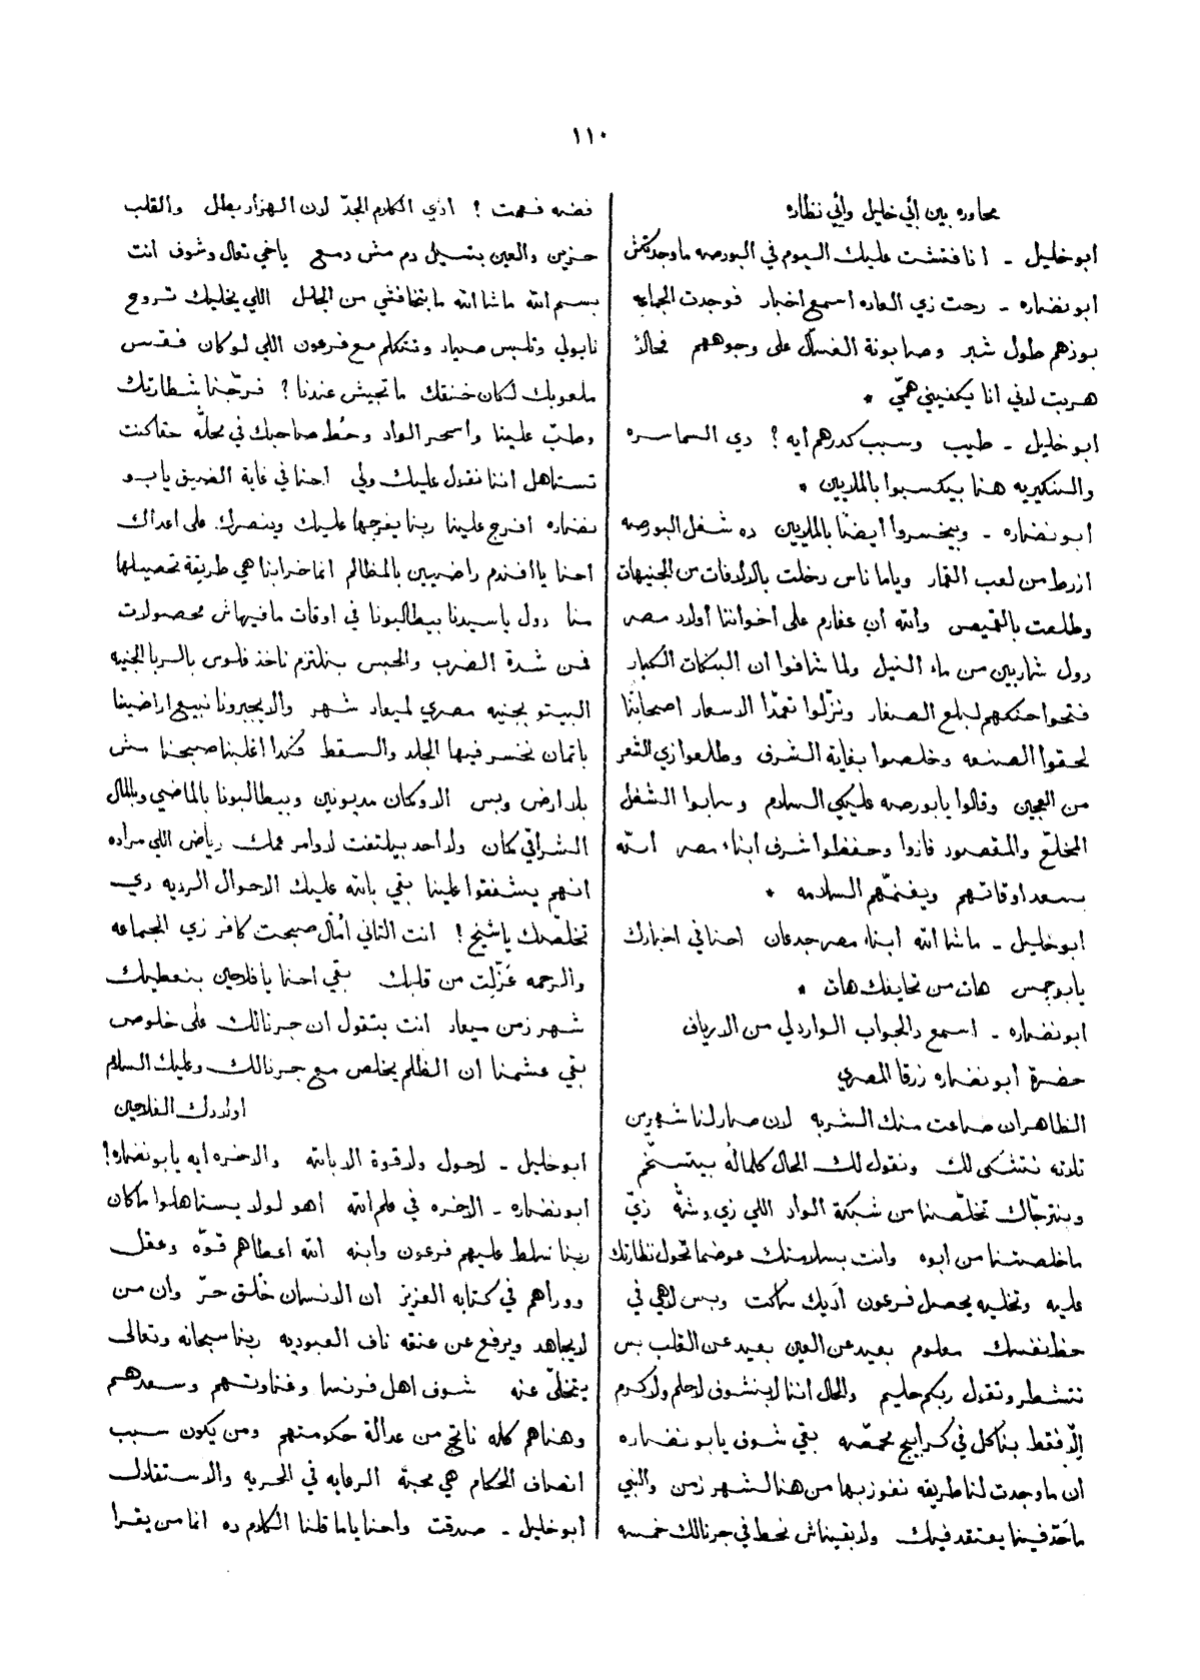 ١١٠
محاوره بين أبي خليل وأبي نظاره
ابوخليل - انا فتشت عليك اليوم في البورصه ما وجدتكش
ابونضاره - رحت زي العاده اسمع اخبار فوجدت الجماعه
بوزهم طول شبر وصابونة الغسال على وجوههم فحالاً
هربت لاني انا يكفيني همّي *
ابوخليل - طيب وسبب كدرهم ايه؟ دي السماسره
والبنكيريه هنا بيكسبوا بالملايين *
ابونضاره - وبيخسروا أيضًا بالملايين ده شغل البورصه
ازرط من لعب القمار وياما ناس دخلت بالالافات من الجنيهات
وطلعت بالقميص والله أبي عفارم على اخواننا أولاد مصر
دول شاربين من ماء النيل ولما شافوا ان البنكات الكبار
فتحوا حنكهم لبلع الصغار ونزّلوا تعمّدًا الاسعار اصحابنا
لحقوا الصنعه وخلصوا بغاية الشرف وطلعوا زي الشعر
من العجين وقالوا يا بورصه عليكي السلام وسابوا الشغل
المخلّع والمقصود فازوا وحفظوا شرف ابناء مصر الله
يسعد اوقاتهم ويغنمهم السلامه *
ابوخليل - ماشا الله ابناء مصر جدعان احنا في اخبارك
يابو جمس هات من تحايفك هات *
ابونضاره - اسمع دالجواب الواردلي من الارياف
حضرة أبونضاره زرقا المصري
الظاهر ان ضاعت منك الشربه لان صار لنا شهرين
تلاته نتشكى لك ونقول لك الحال كلماله بيتسخّم
وبنترجّاك تخلّصنا من شبكة الواد اللي زي وشّه زيّ
ما خلصتنا من أبوه وانت بسلامتك عوضما تحول نظارتك
عليه وتخليه يحصل فرعون أديك ساكت وبس لاهي في
حظ نفسك معلوم بعيد عن العين بعيد عن القلب بس
تتشطر وتقول ربكم حليم والحال اننا لا بنشوف لا حلم ولا كرم
إلّا فقط بناكل في كرابيج محمصه بقي شوف يابو نضاره
ان ما وجدت لنا طريقه نفوز بها من هنا لشهر زمن والنبي
ماحّد فينا يعتقد فيك ولا بقيناش نحط في جرنالك خمسه
فضه فهمت؟ ادي الكلام الجدّ لان الهزار بطل والقلب
حزين والعين بتسيل دم مش دمع ياخي تعال وشوف انت
بسم الله ماشا الله ما بتخافشي من الجلجل اللي يخليك تروح
نابولي وتلبس صياد وتتكلم مع فرعون اللي لوكان فقس
ملعوبك لكان خنقك ما تجيش عندنا؟ فرجنا شطارتك
وطبّ علينا واسحر الواد وحُط صاحبك في محلّه حقا كنت
تستاهل اننا نقول عليك ولي احنا في غاية الضيق يابو
نضاره افرج علينا ربنا يفرجها عليك وينصرك على اعداك
احنا يا افندم راضيين بالمظالم انما خرابنا هي طريقة تحصيلها
منا دول ياسيدنا بيطالبونا في اوقات مافيهاش محصولات
فمن شدة الضرب والحبس بنلتزم ناخذ فلوس بالربا الجنيه
البينتو بجنيه مصري لميعاد شهر والا يجبرونا نبيع اراضينا
باتمان نخسر فيها الجلد والسقط فكدا اغلبنا صبحنا مش
بلا ارض وبس الا وكمان مديونين وبيطالبونا بالماضي وبالمال
الشراقي كمان ولا احد بيلتفت لاوامر عمك رياض اللي مراده
انهم يشفقوا علينا بقي بالله عليك الاحوال الرديه دي
تخلّصك ياشيخ! انت التاني أُمّال صبحت كافر زي الجماعه
والرحمه عَزّلِت من قلبك بقي احنا يا فلاحين بنعطيك
شهر زمن ميعاد انت بتقول ان جرنالك على خلوص
بقي عشمنا ان الظلم يخلص مع جرنالك وعليك السلام
اولادك الفلاحين
ابوخليل - لاحول ولا قوة الا بالله والاخره ايه يابونضاره!
أبونضاره - الاخره في علم الله اهو لولا يستاهلوا ماكان
ربنا سلط عليهم فرعون وابنه الله اعطاهم قوّه وعقل
ووراهم في كتابه العزيز ان الانسان خُلق حرّ وان من
لا يجاهد ويرفع عن عنقه ناف العبوديه ربنا سبحانه وتعالى
يتخلّى عنه شوف اهل فرنسا وغناوتهم وسعدهم
وهناهم كله ناتج من عدالة حكومتهم ومن يكون سبب
انصاف الحكام هي محبة الرعايه في الحريه والاستقلال
أبوخليل - صدقت واحنا ياما قلنا الكلام ده انما من يقرا